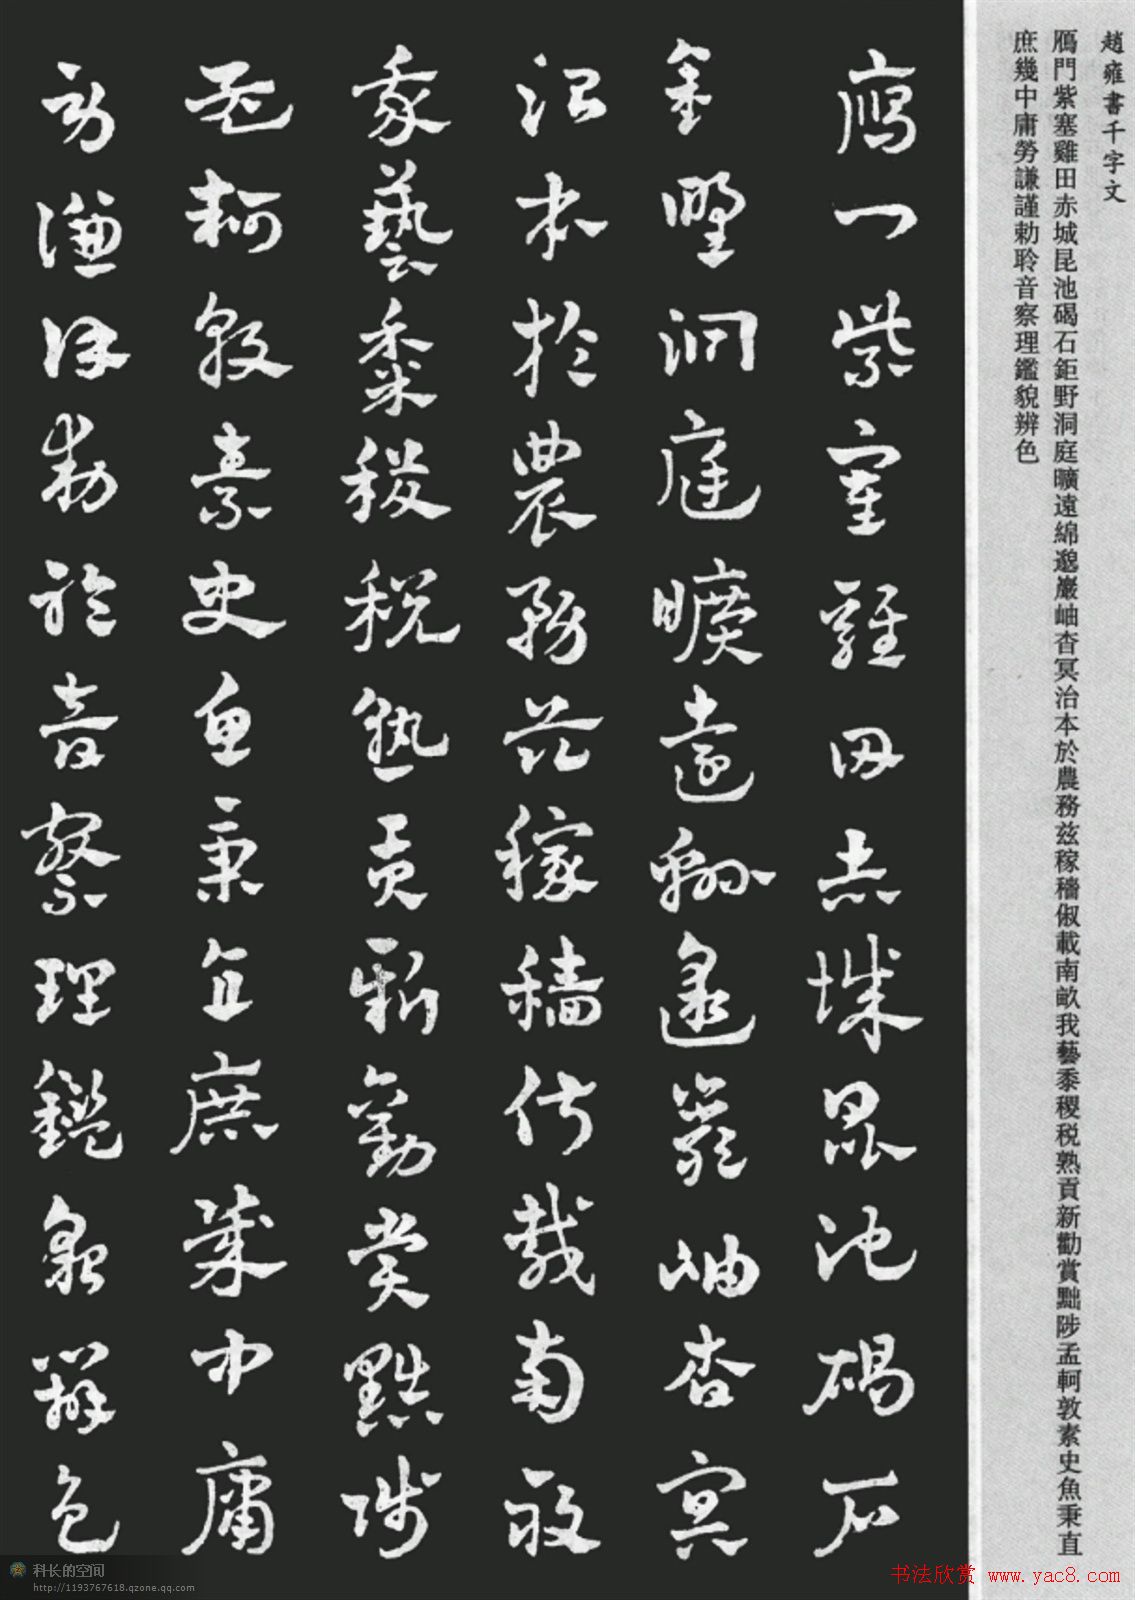 趙雍書千字文
鴈門紫塞雞田赤城昆池碣石鉅野洞庭曠遠綿邈巖岫杳冥治本於農務兹稼穡俶載南畝我藝黍稷税熟貢新勸賞黜陟孟軻敦素史魚秉直
庶幾中庸勞謙謹勅聆音察理鑑貌辨色
鴈門紫塞雞田赤城昆池碣石
鉅野洞庭曠遠綿邈巖岫杳冥
治本於農務兹稼穡俶載南畝
我藝黍稷税熟貢新勸賞黜陟
孟軻敦素史魚秉直庶幾中庸
勞謙謹勅聆音察理鑑貌辨色
科长的空间
http://1193767618.qzone.qq.com
书法欣赏 www.yac8.com